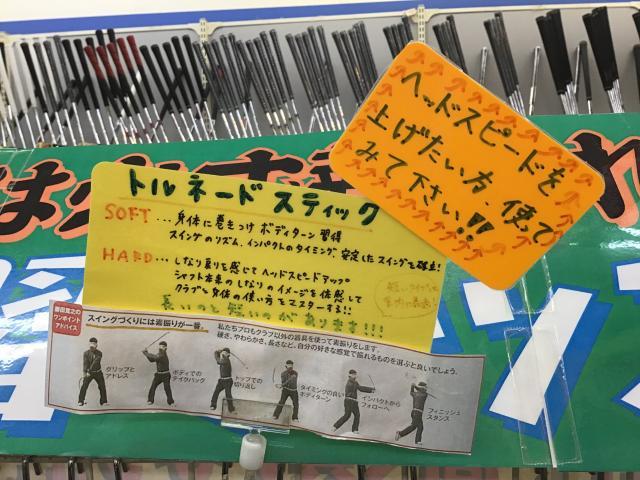 ヘッドスピードを
上げたい方、使って
みて下さい!!
トルネードスティック
SOFT...身体に巻きつけ ボディターン習得
スイングのリズム、インパクトのタイミング、安定したスイングを確立!
HARD...しなり戻りを感じてヘッドスピードアップ
シャフト本来のしなりのイメージを体感して
クラブと身体の使い方をマスターする!!
長いのと短いのがあります!!!
ワンポイント
アドバイス
スイングづくりには素振りが一番。
私たちプロもクラブ以外の器具を使って素振りをします。
硬さ、やわらかさ、長さなど、自分の好きな感覚で振れるものを選ぶと良いでしょう。
グリップと
アドレス
ボディでの
テイクバック
トップでの
切り返し
タイミングの良い
ボディターン
インパクトから
フォローへ
フィニッシュ
スタンス